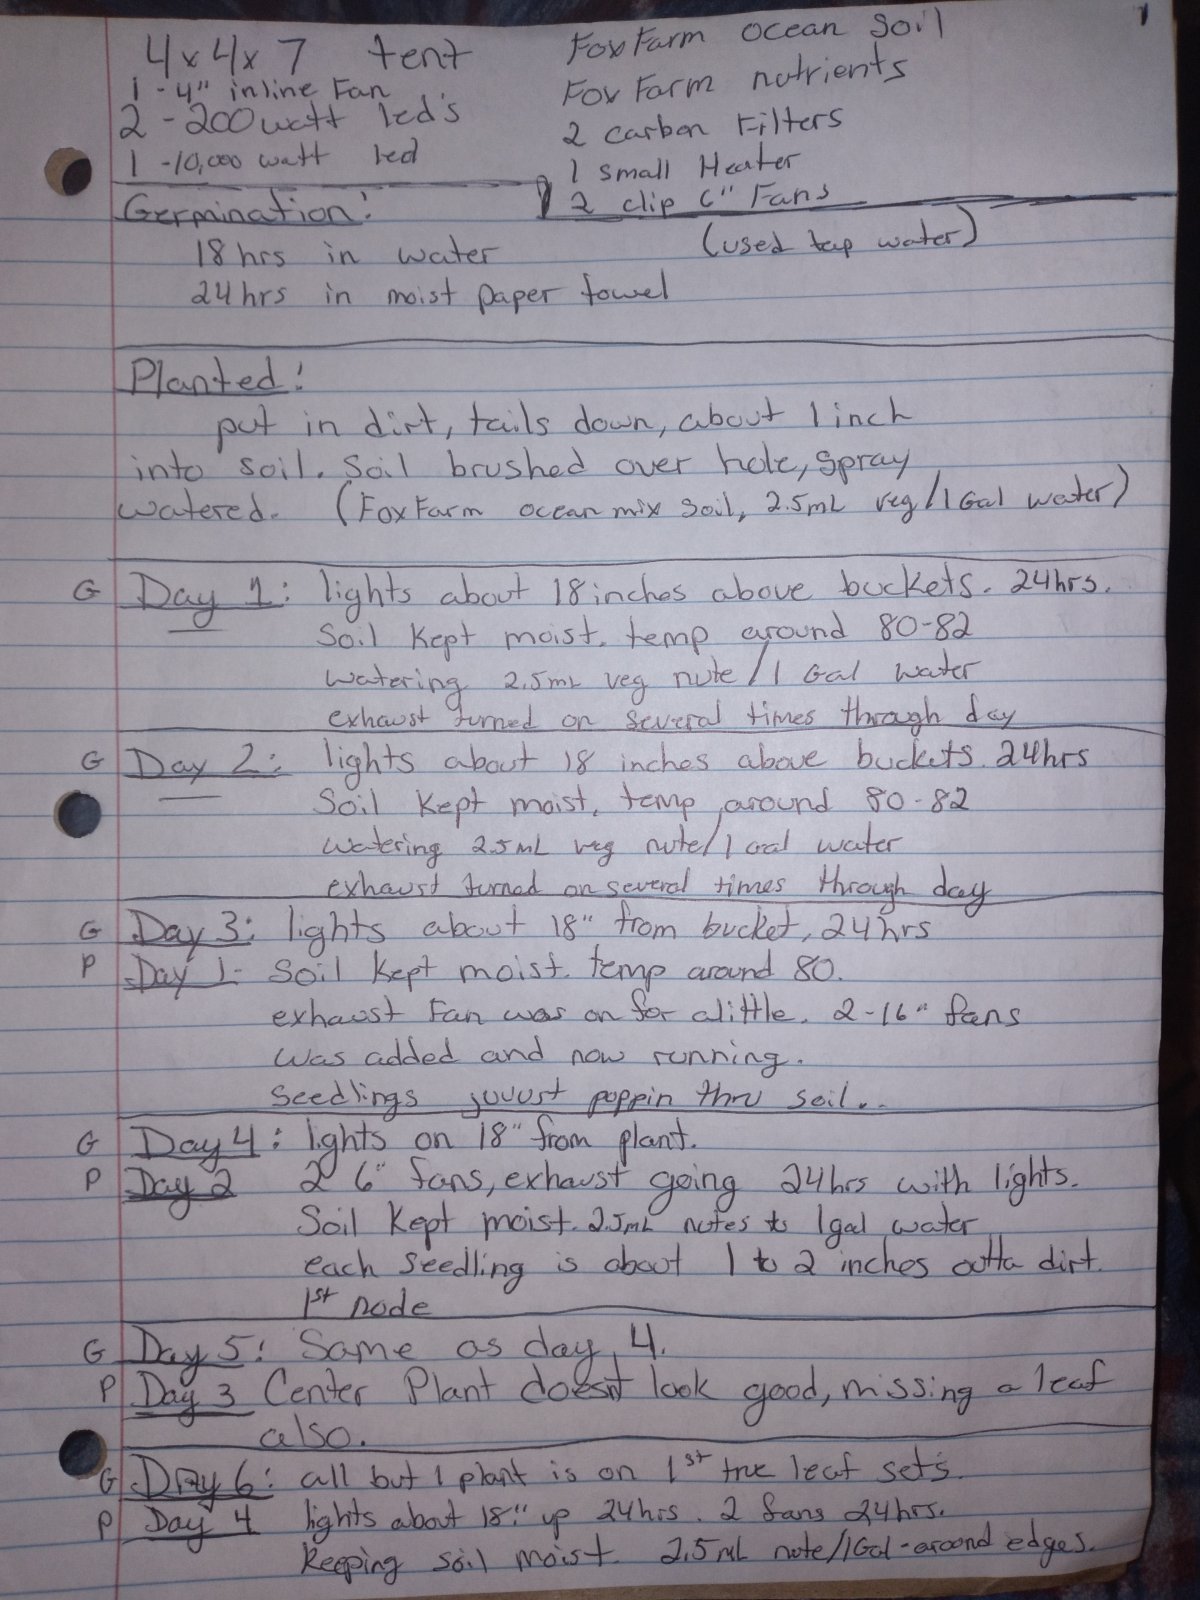 1
4x4x7 tent
1 - 4" inline Fan
2 - 200 watt led's
1 - 10,000 watt led
FoxFarm ocean soil
FoxFarm nutrients
2 carbon Filters
1 small Heater
2 clip 6" Fans
Germination:
(used tap water)
18 hrs in water
24 hrs in moist paper towel
Planted:
put in dirt, tails down, about 1 inch
into soil. Soil brushed over hole, spray
watered. (FoxFarm ocean mix soil, 2.5mL veg/1 Gal water)
G Day 1: lights about 18 inches above buckets. 24hrs.
Soil kept moist. temp around 80-82
watering 2.5mL veg nute/1 Gal water
exhaust turned on several times through day
G Day 2: lights about 18 inches above buckets. 24hrs
Soil kept moist, temp around 80-82
watering 2.5mL veg nute/1 Gal water
exhaust turned on several times through day
G Day 3: lights about 18" from bucket, 24hrs
P Day 1- Soil kept moist. temp around 80.
exhaust Fan was on for alittle. 2-16" fans
was added and now running.
Seedlings juuust poppin thru soil..
G Day 4: lights on 18" from plant.
P Day 2 2 6" fans, exhaust going 24hrs with lights.
Soil kept moist. 2.5mL nutes to 1gal water
each seedling is about 1 to 2 inches outta dirt.
1st node
G Day 5: Same as day 4.
P Day 3 Center Plant doesn't look good, missing a leaf
also.
G Day 6: all but 1 plant is on 1st true leaf sets.
P Day 4 lights about 18" up 24hrs. 2 fans 24hrs.
Keeping soil moist 2.5mL nute/1Gal-around edges.